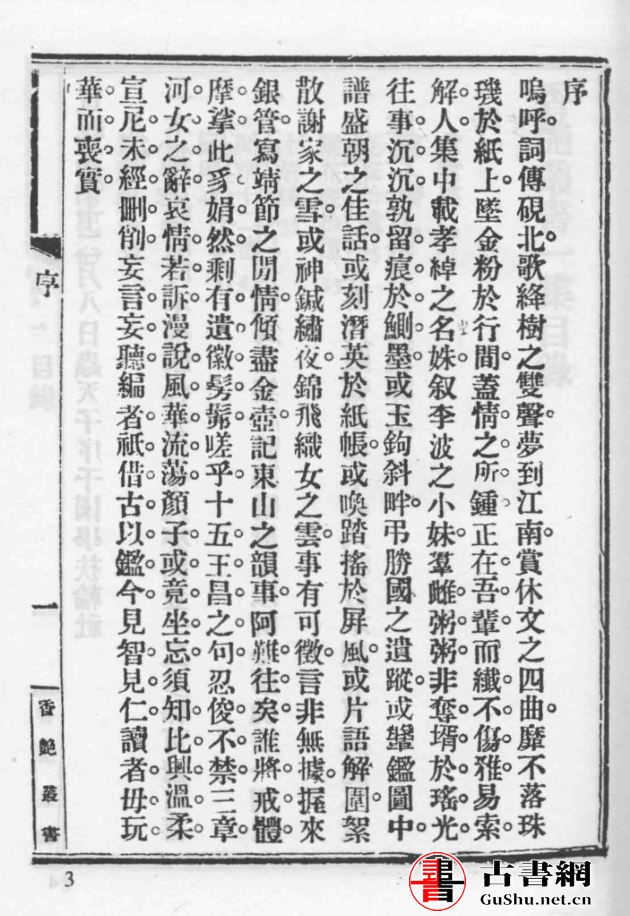 序
嗚呼。詞傳硯北。歌絳樹之雙聲。夢到江南。賞休文之四曲。靡不落珠
璣於紙上。墜金粉於行間。蓋情之所鍾。正在吾輩。而纖不傷雅。易索
解人。集中載孝綽之名姝。叙李波之小妹。羣雌粥粥。非奪壻於瑤光。
往事沉沉。孰留痕於鰂墨。或玉鉤斜畔。弔勝國之遺蹤。或鞶鑑圖中。
譜盛朝之佳話。或刻潛英於紙帳。或喚踏搖於屏風。或片語解圍。絮
散謝家之雪。或神鍼繡夜。錦飛織女之雲。事有可徵。言非無據。握來
銀管。寫靖節之閒情。傾盡金壺。記東山之韻事。阿難往矣。誰將戒體
摩挲。此豸娟然。剩有遺徽髣髴。嗟乎。十五王昌之句。忍俊不禁。三章
河女之辭。哀情若訴。漫說風華流蕩。顏子或竟坐忘。須知比興溫柔。
宣尼未經刪削。妄言妄聽。編者祇借古以鑑今。見智見仁。讀者毋玩
華而喪實。
序
一
香艷叢書
3
古書網
GuShu.net.cn